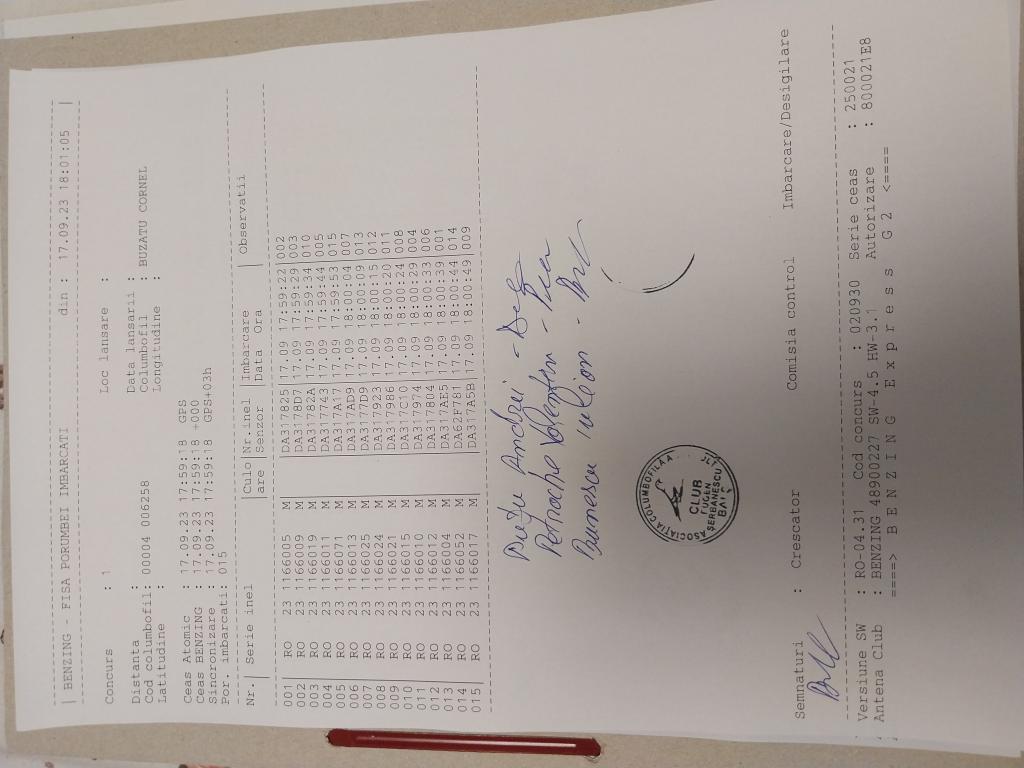 | BENZING - FISA PORUMBEI IMBARCATI din : 17.09.23 18:01:05 |
Concurs : 1 Loc lansare :
Distanta : Data lansarii :
Cod columbofil: 00004 006258 Columbofil : BUZATU CORNEL
Latitudine : Longitudine :
Ceas Atomic : 17.09.23 17:59:18 GPS
Ceas BENZING : 17.09.23 17:59:18 +000
Sincronizare : 17.09.23 17:59:18 GPS+03h
Por. imbarcati: 015
Nr.| Serie inel |Culo|Nr.inel |Imbarcare | Observatii
are |Senzor |Data Ora |
001| RO 23 1166005 M |DA317825|17.09 17:59:22|002
002| RO 23 1166009 M |DA3178D7|17.09 17:59:29|003
003| RO 23 1166019 M |DA31782A|17.09 17:59:34|010
004| RO 23 1166011 M |DA317743|17.09 17:59:44|005
005| RO 23 1166071 M |DA317A17|17.09 17:59:53|015
006| RO 23 1166013 M |DA317AD9|17.09 18:00:04|007
007| RO 23 1166025 M |DA3177D9|17.09 18:00:09|013
008| RO 23 1166024 M |DA317923|17.09 18:00:15|012
009| RO 23 1166021 M |DA317986|17.09 18:00:20|011
010| RO 23 1166015 M |DA317210|17.09 18:00:24|008
011| RO 23 1166010 M |DA317974|17.09 18:00:29|004
012| RO 23 1166012 M |DA317804|17.09 18:00:33|006
013| RO 23 1166004 M |DA317AE5|17.09 18:00:39|001
014| RO 23 1166052 M |DA62F781|17.09 18:00:44|014
015| RO 23 1166017 M |DA317A5B|17.09 18:00:49|009
Andrei -
Petrache Valentin -
Brinescu Iulian -
ASOCIATIA COLUMBOFILA
CLUB
EUGEN
SERBANESCU
Semnaturi : Crescator Comisia control Imbarcare/Desigilare
Versiune SW : RO-04.31 Cod concurs : 020930 Serie ceas : 250021
Antena Club : BENZING 48900227 SW-4.5 HW-3.1 Autorizare : 800021E8
====> B E N Z I N G E x p r e s s G 2 <====